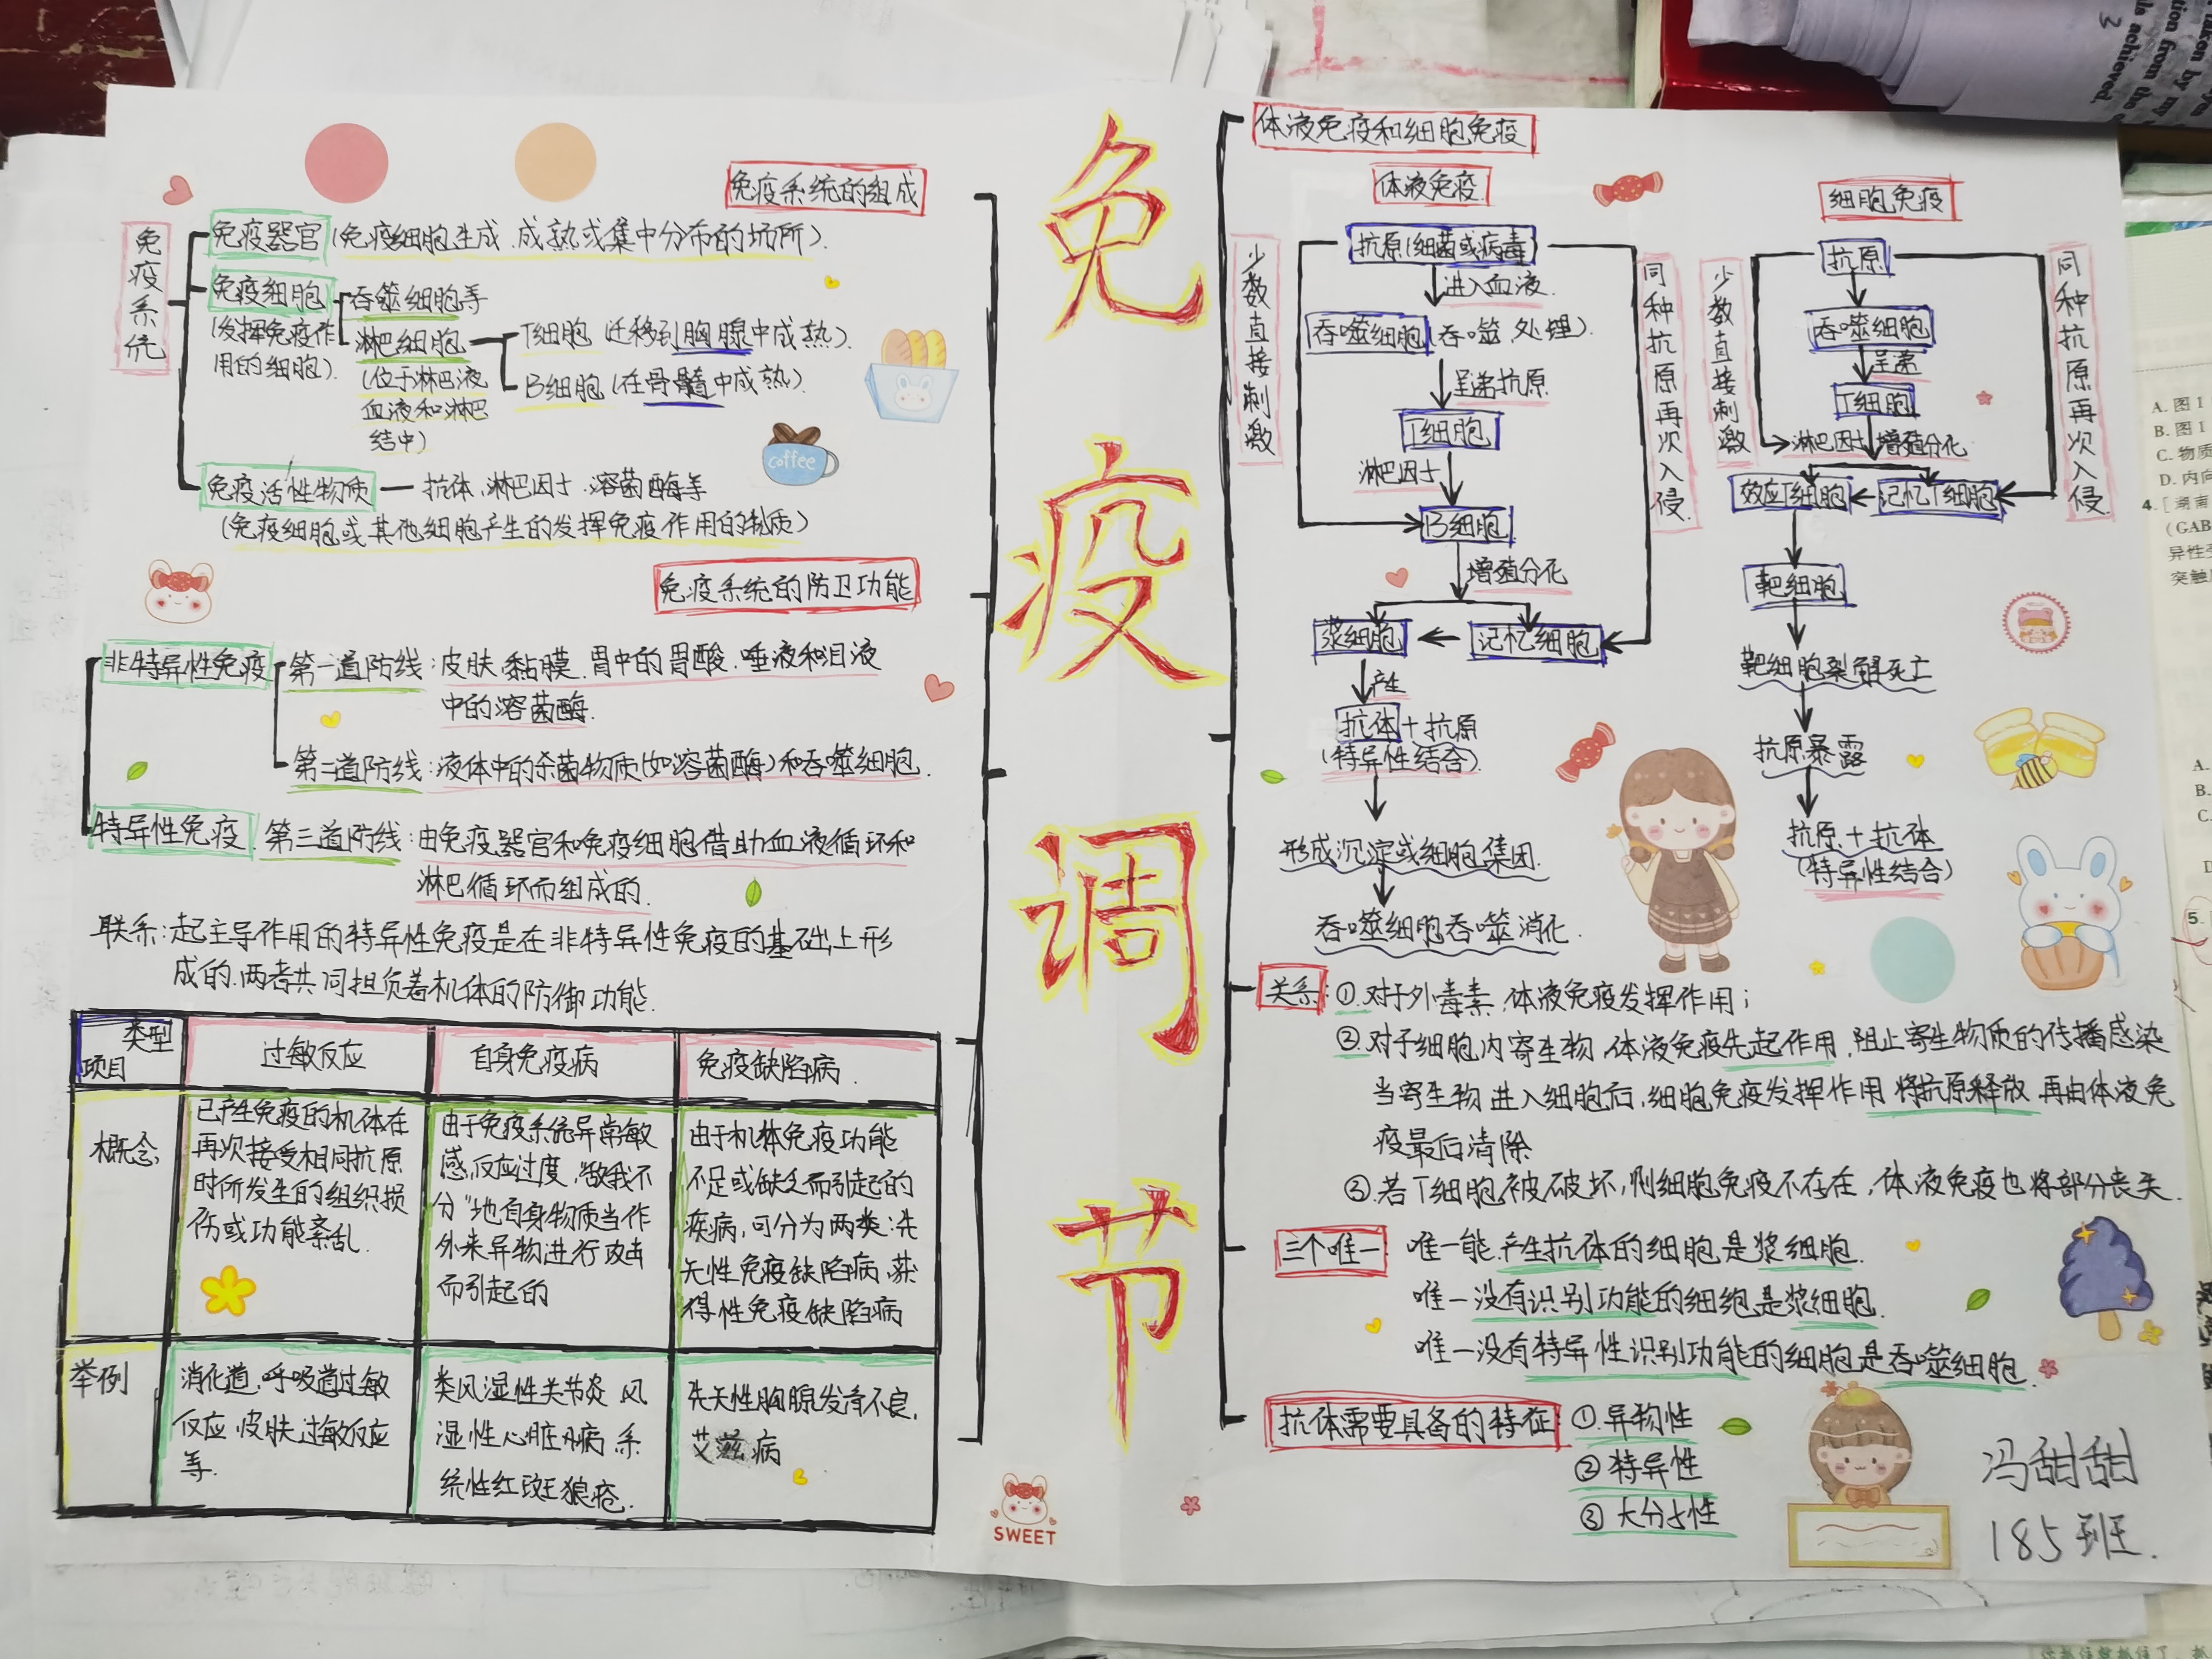 免疫调节
免疫系统的组成
免疫系统
免疫器官(免疫细胞生成、成熟或集中分布的场所).
免疫细胞
(发挥免疫作
用的细胞).
吞噬细胞等
淋巴细胞
(位于淋巴液
血液和淋巴
结中)
T细胞 迁移到胸腺中成熟).
B细胞(在骨髓中成熟).
免疫活性物质—抗体、淋巴因子、溶菌酶等
(免疫细胞或其他细胞产生的发挥免疫作用的物质)
coffee
免疫系统的防卫功能
非特异性免疫
第一道防线:皮肤、黏膜、胃中的胃酸、唾液和泪液
中的溶菌酶.
第二道防线:液体中的杀菌物质(如溶菌酶)和吞噬细胞.
特异性免疫 第三道防线:由免疫器官和免疫细胞借助血液循环和
淋巴循环而组成的.
联系:起主导作用的特异性免疫是在非特异性免疫的基础上形
成的.两者共同担负着机体的防御功能.
类型
项目
过敏反应
自身免疫病
免疫缺陷病.
概念
已产生免疫的机体在
再次接受相同抗原
时所发生的组织损
伤或功能紊乱.
由于免疫系统异常敏
感,反应过度,“敌我不
分”地自身物质当作
外来异物进行攻击
而引起的
由于机体免疫功能
不足或缺乏而引起的
疾病,可分为两类:先
天性免疫缺陷病、获
得性免疫缺陷病
举例
消化道、呼吸道过敏
反应、皮肤过敏反应
等.
类风湿性关节炎 风
湿性心脏病、系
统性红斑狼疮.
先天性胸腺发育不良,
艾滋病
SWEET
体液免疫和细胞免疫
体液免疫
少数直接刺激
抗原(细菌或病毒
进入血液.
吞噬细胞(吞噬、处理).
呈递抗原
T细胞
淋巴因子
B细胞
增殖分化
浆细胞 ← 记忆细胞
同种抗原再次入侵.
产生
抗体+抗原
(特异性结合).
形成沉淀或细胞集团.
吞噬细胞吞噬消化.
细胞免疫
少数直接刺激
抗原
吞噬细胞
呈递
T细胞
淋巴因子 增殖分化
效应T细胞 ← 记忆T细胞
同种抗原再次入侵.
靶细胞
靶细胞裂解死亡
抗原暴露
抗原+抗体
(特异性结合)
关系:①.对于外毒素,体液免疫发挥作用;
②.对于细胞内寄生物,体液免疫先起作用,阻止寄生物质的传播感染
当寄生物进入细胞后,细胞免疫发挥作用将抗原释放,再由体液免
疫最后清除
③.若T细胞被破坏,则细胞免疫不存在,体液免疫也将部分丧失.
三个唯一:唯一能产生抗体的细胞是浆细胞.
唯一没有识别功能的细胞是浆细胞.
唯一没有特异性识别功能的细胞是吞噬细胞.
抗体需要具备的特征:①.异物性
②特异性
③大分子性
冯甜甜
185班.
A.图1
B.图1
C.物质
D.内向
4.[湖南
(GAB
突触
5.